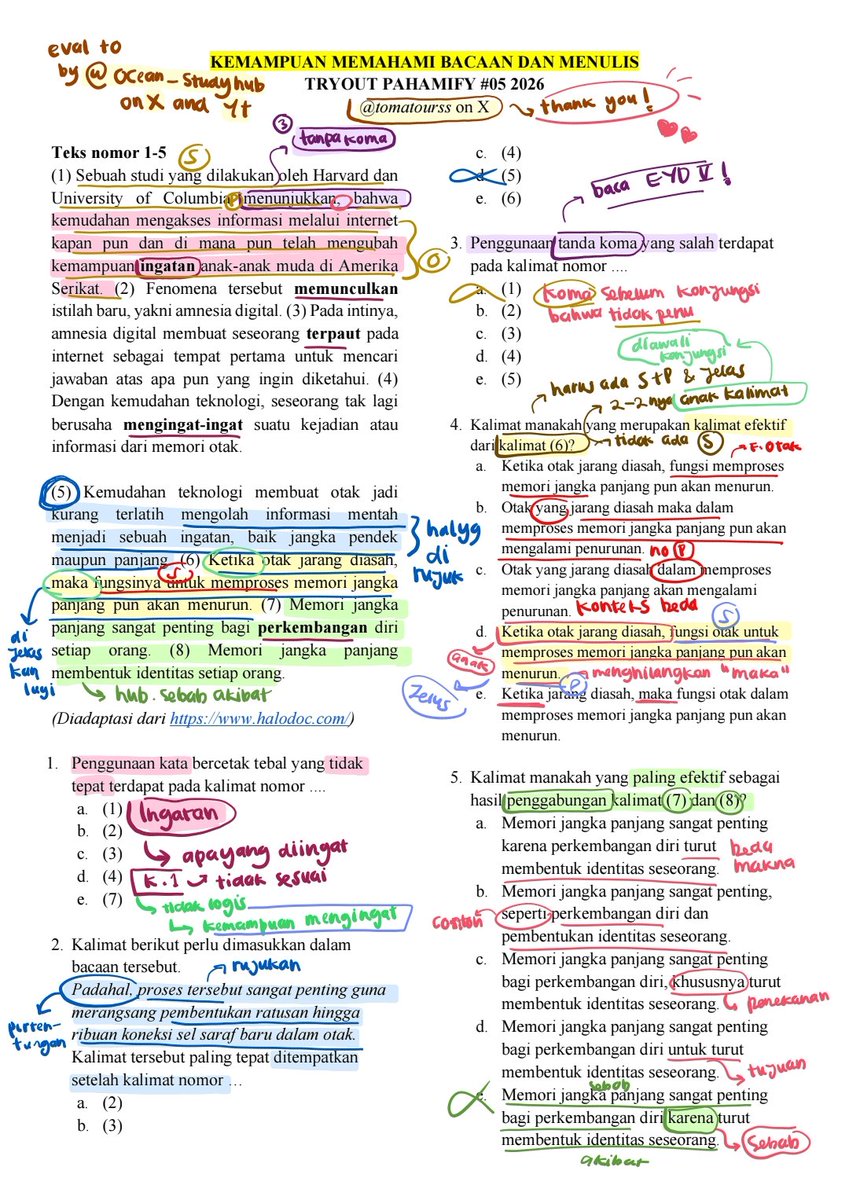 eval to
by @ Ocean_Studyhub
on X and Yt
KEMAMPUAN MEMAHAMI BACAAN DAN MENULIS
TRYOUT PAHAMIFY #05 2026
@tomatourss on X
thank you!
3 tanpa koma
Teks nomor 1-5
S
(1) Sebuah studi yang dilakukan oleh Harvard dan
University of Columbia menunjukkan, bahwa
P
kemudahan mengakses informasi melalui internet
kapan pun dan di mana pun telah mengubah
kemampuan ingatan anak-anak muda di Amerika
O
Serikat. (2) Fenomena tersebut memunculkan
istilah baru, yakni amnesia digital. (3) Pada intinya,
amnesia digital membuat seseorang terpaut pada
internet sebagai tempat pertama untuk mencari
jawaban atas apa pun yang ingin diketahui. (4)
Dengan kemudahan teknologi, seseorang tak lagi
berusaha mengingat-ingat suatu kejadian atau
informasi dari memori otak.
(5) Kemudahan teknologi membuat otak jadi
kurang terlatih mengolah informasi mentah
menjadi sebuah ingatan, baik jangka pendek
maupun panjang. (6) Ketika otak jarang diasah,
hal yg
di
rujuk
S
maka fungsinya untuk memproses memori jangka
panjang pun akan menurun. (7) Memori jangka
panjang sangat penting bagi perkembangan diri
setiap orang. (8) Memori jangka panjang
membentuk identitas setiap orang.
di
jelas
kan
lagi
hub. sebab akibat
(Diadaptasi dari https://www.halodoc.com/)
1. Penggunaan kata bercetak tebal yang tidak
tepat terdapat pada kalimat nomor ....
a. (1)
Ingatan
b. (2)
c. (3)
apa yang diingat
d. (4)
K.1 tidak sesuai
e. (7)
tidak logis
kemampuan mengingat
2. Kalimat berikut perlu dimasukkan dalam
bacaan tersebut.
rujukan
Padahal, proses tersebut sangat penting guna
merangsang pembentukan ratusan hingga
ribuan koneksi sel saraf baru dalam otak.
perten-
tangan
Kalimat tersebut paling tepat ditempatkan
setelah kalimat nomor …
a. (2)
b. (3)
c. (4)
d. (5)
e. (6)
baca EYD V!
3. Penggunaan tanda koma yang salah terdapat
pada kalimat nomor ....
a. (1)
koma sebelum konjungsi
bahwa tidak perlu
b. (2)
c. (3)
d. (4)
e. (5)
diawali
konjungsi
harus ada S+P & jelas
2-2nya anak kalimat
4. Kalimat manakah yang merupakan kalimat efektif
dari kalimat (6)?
tidak ada S
F. otak
a. Ketika otak jarang diasah, fungsi memproses
memori jangka panjang pun akan menurun.
b. Otak yang jarang diasah maka dalam
memproses memori jangka panjang pun akan
mengalami penurunan.
no P
c. Otak yang jarang diasah dalam memproses
memori jangka panjang akan mengalami
penurunan.
konteks beda
S
d. Ketika otak jarang diasah, fungsi otak untuk
memproses memori jangka panjang pun akan
menurun.
anak
P
menghilangkan "maka"
Jelas
e. Ketika jarang diasah, maka fungsi otak dalam
memproses memori jangka panjang pun akan
menurun.
5. Kalimat manakah yang paling efektif sebagai
hasil penggabungan kalimat (7) dan (8)?
a. Memori jangka panjang sangat penting
karena perkembangan diri turut
membentuk identitas seseorang.
beda
makna
b. Memori jangka panjang sangat penting,
seperti perkembangan diri dan
pembentukan identitas seseorang.
contoh
c. Memori jangka panjang sangat penting
bagi perkembangan diri, khususnya turut
membentuk identitas seseorang.
penekanan
d. Memori jangka panjang sangat penting
bagi perkembangan diri untuk turut
membentuk identitas seseorang.
tujuan
sebab
e. Memori jangka panjang sangat penting
bagi perkembangan diri karena turut
membentuk identitas seseorang.
Sebab
akibat